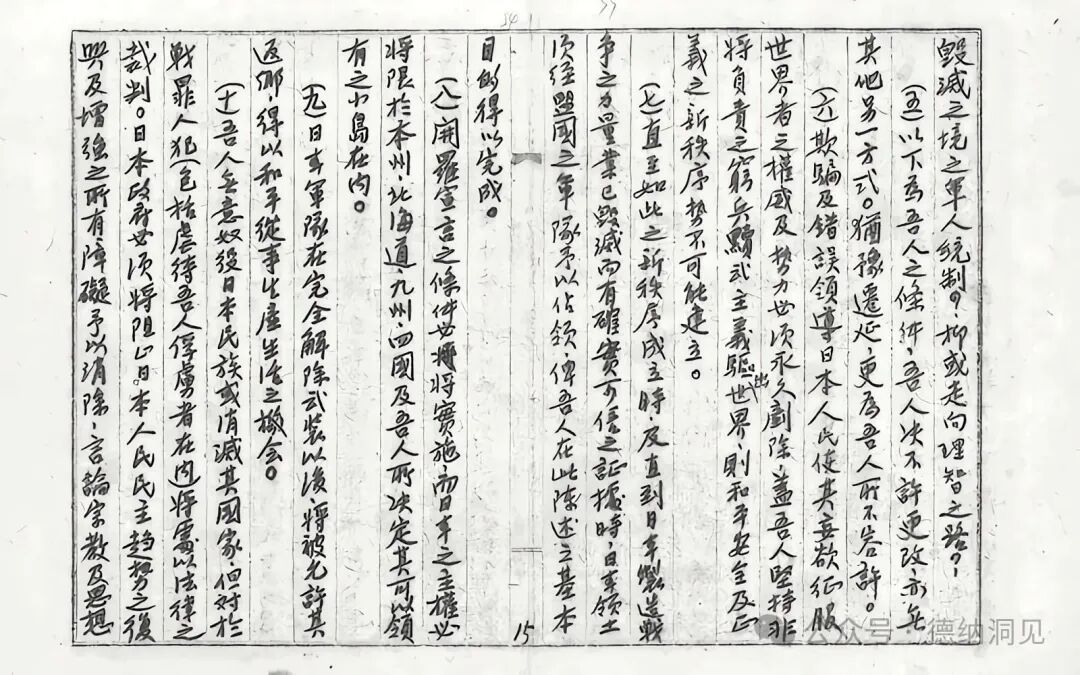 毀滅之境之軍人統制？抑或走向理智之路？
（五）以下為吾人之條件，吾人決不許更改亦無
其他另一方式。猶豫遷延，更為吾人所不容許。
（六）欺騙及錯誤領導日本人民使其妄欲征服
世界者之權威及勢力必須永久剷除，蓋吾人堅持非
將負責之窮兵黷武主義驅出世界，則和平安全及正
義之新秩序勢不可能建立。
（七）直至如此之新秩序成立時及直到日本製造戰
爭之力量業已毀滅而有確實可信之証據時，日本領土
須經盟國之軍隊予以佔領，俾吾人在此陳述之基本
目的得以完成。
（八）開羅宣言之條件必將實施，而日本之主權必
將限於本州，北海道，九州，四國及吾人所決定其可以領
有之小島在內。
（九）日本軍隊在完全解除武裝以後，將被允許其
返鄉，得以和平從事生產生活之機会。
（十）吾人無意奴役日本民族或消滅其國家，但對於
戰罪人犯（包括虐待吾人俘虜者在內）將處以法律之
裁判。日本政府必須將阻止日本人民民主趨勢之復
興及增強之所有障礙予以消除，言論宗教及思想
15
公众号：德纳洞见